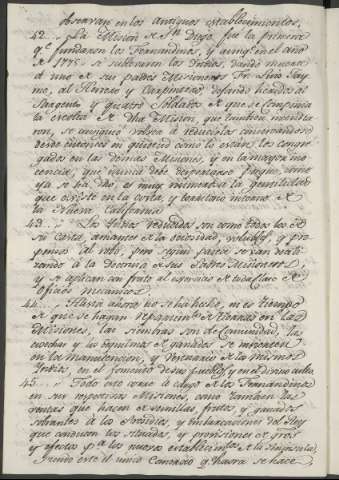 observan en los antiguos establecimientos.
42... La Mision de Sn. Diego, fue la primera
qe. fundaron los Fernandinos, y aunqe. en el año
de 1775 se sublevaron los Yndios, dando muerte
a uno de sus padres Misioneros Fr. Luis Jay-
me, al Herrero y Carpintero, dejando heridos al
Sargento y quatro Soldados de que se componia
la escolta de dha Mision, que tambien incendia-
ron, se consiguio volver a reducirlos conservandose
desde entonces en quietud como lo estan los congre-
gados en las demas Misiones, y en la mayor ino-
cencia, que nunca debe despreciarse porque, como
ya se ha dho, es muy numerosa la gentilidad
que existe en la costa, y territorio interno de
la Nueva California
43... Los Yndios reducidos son como todos los de
su Casta, amantes de la ociosidad, volubles, y pro-
pensos al robo, pero segun parece se van deali-
rando a la Doctrina de sus Padres Misioneros
y se aplican con fruto al exercicio de
oficios mecanicos
44... Hasta ahora no se ha hecho, ni es tiempo
de que se hagan repartimtos. de tierras en las
Misiones, las siembras son de Comunidad, las
cosechas y los esquilmos de ganados se invierten
en la manutencion, y vestuario de los mismos
Yndios, en el fomento de sus pueblos, y en el divino culto.
45... Todo esto corre a cargo de los Fernandinos
en sus respectivas Misiones, como tambien las
ventas que hacen de semillas, frutos, y ganados
sobrantes a los Presidios, y embarcaciones del Rey
que conducen los situados, y provisiones de
y efectos pa. los nuevos establecimtos. de la Peninsula,
siendo este el unico Comercio qe. hasta se hace